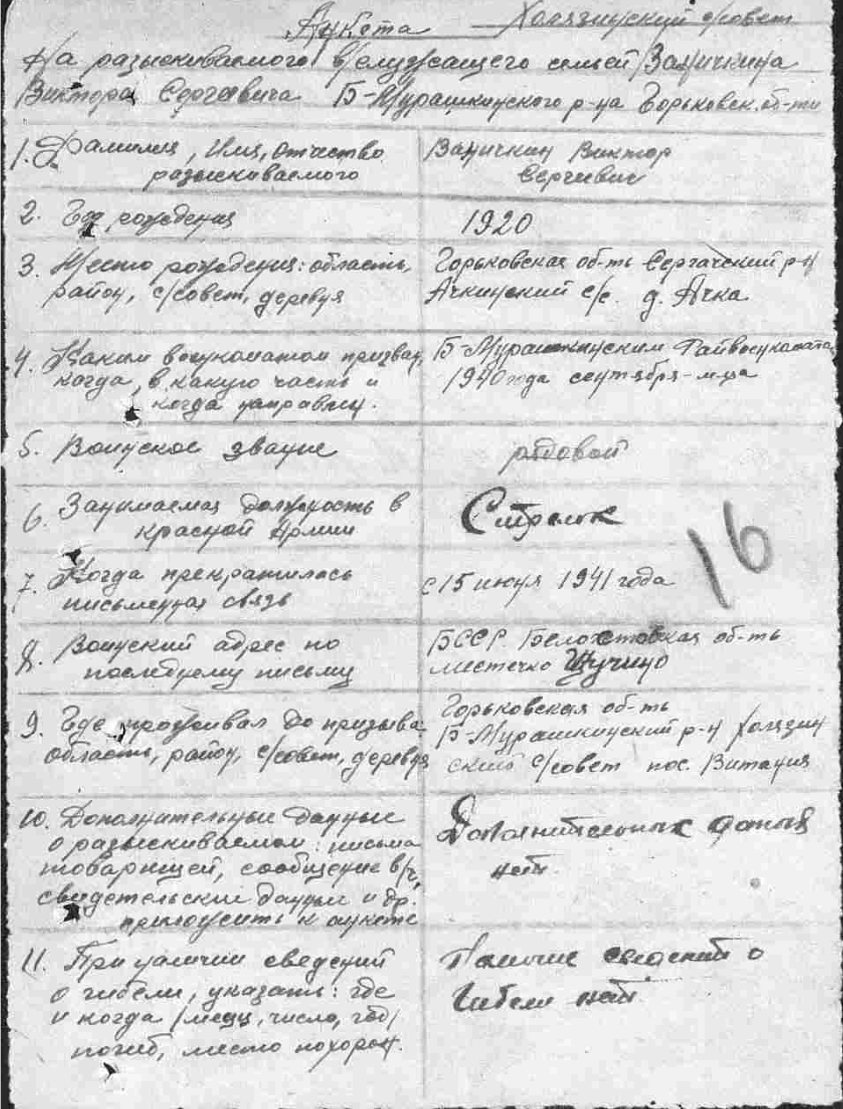 Анкета Холязинский с/совет
На разыскиваемого в/служащего семьей Заничкина
Виктора Сергеевича Б-Мурашкинского р-на Горьковск. об-ти
1. Фамилия, Имя, Отчество Заничкин Виктор
разыскиваемого Сергеевич
2. Год рождения 1920
3. Место рождения: область, Горьковская об-ть Сергачский р-н
район, с/совет, деревня Ачкинский с/с. д. Ачка
4. Каким военкоматом призван, Б-Мурашкинским Райвоенкомата
когда, в какую часть и 1940 года сентября м-ца
когда направлен.
5. Воинское звание рядовой
6. Занимаемая должность в Стрелок
красной Армии
16
7. Когда прекратилась с 15 июня 1941 года
письменная связь
8. Воинский адрес по БССР. Белостокская об-ть
последнему письму местечко Щучино
9. Где проживал до призыва Горьковская об-ть
область, район, с/совет, деревня Б-Мурашкинский р-н Холязин
ский с/совет пос. Витания
10. Дополнительные данные Дополнительных даных
о разыскиваемом: письма нет
товарищей, сообщение в/ч,
свидетельские данные и др.
приложить к анкете
11. При наличии сведений Наличие сведений о
о гибели, указать: где гибели нет
и когда /месяц, число, год/
погиб, место похорон.